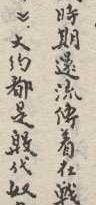 時期還流傳着在戰
》大約都是殷代奴